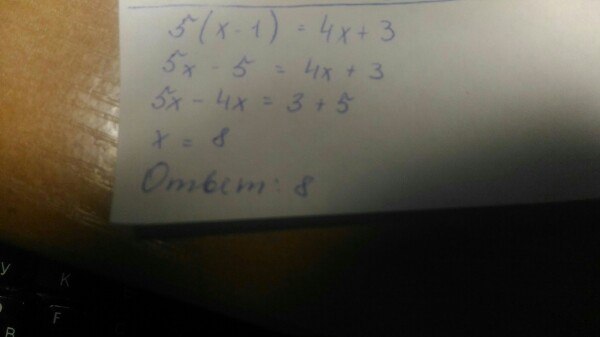 5(x-1) = 4x+3
5x - 5 = 4x + 3
5x - 4x = 3 + 5
x = 8
Ответ: 8
У К
F
В